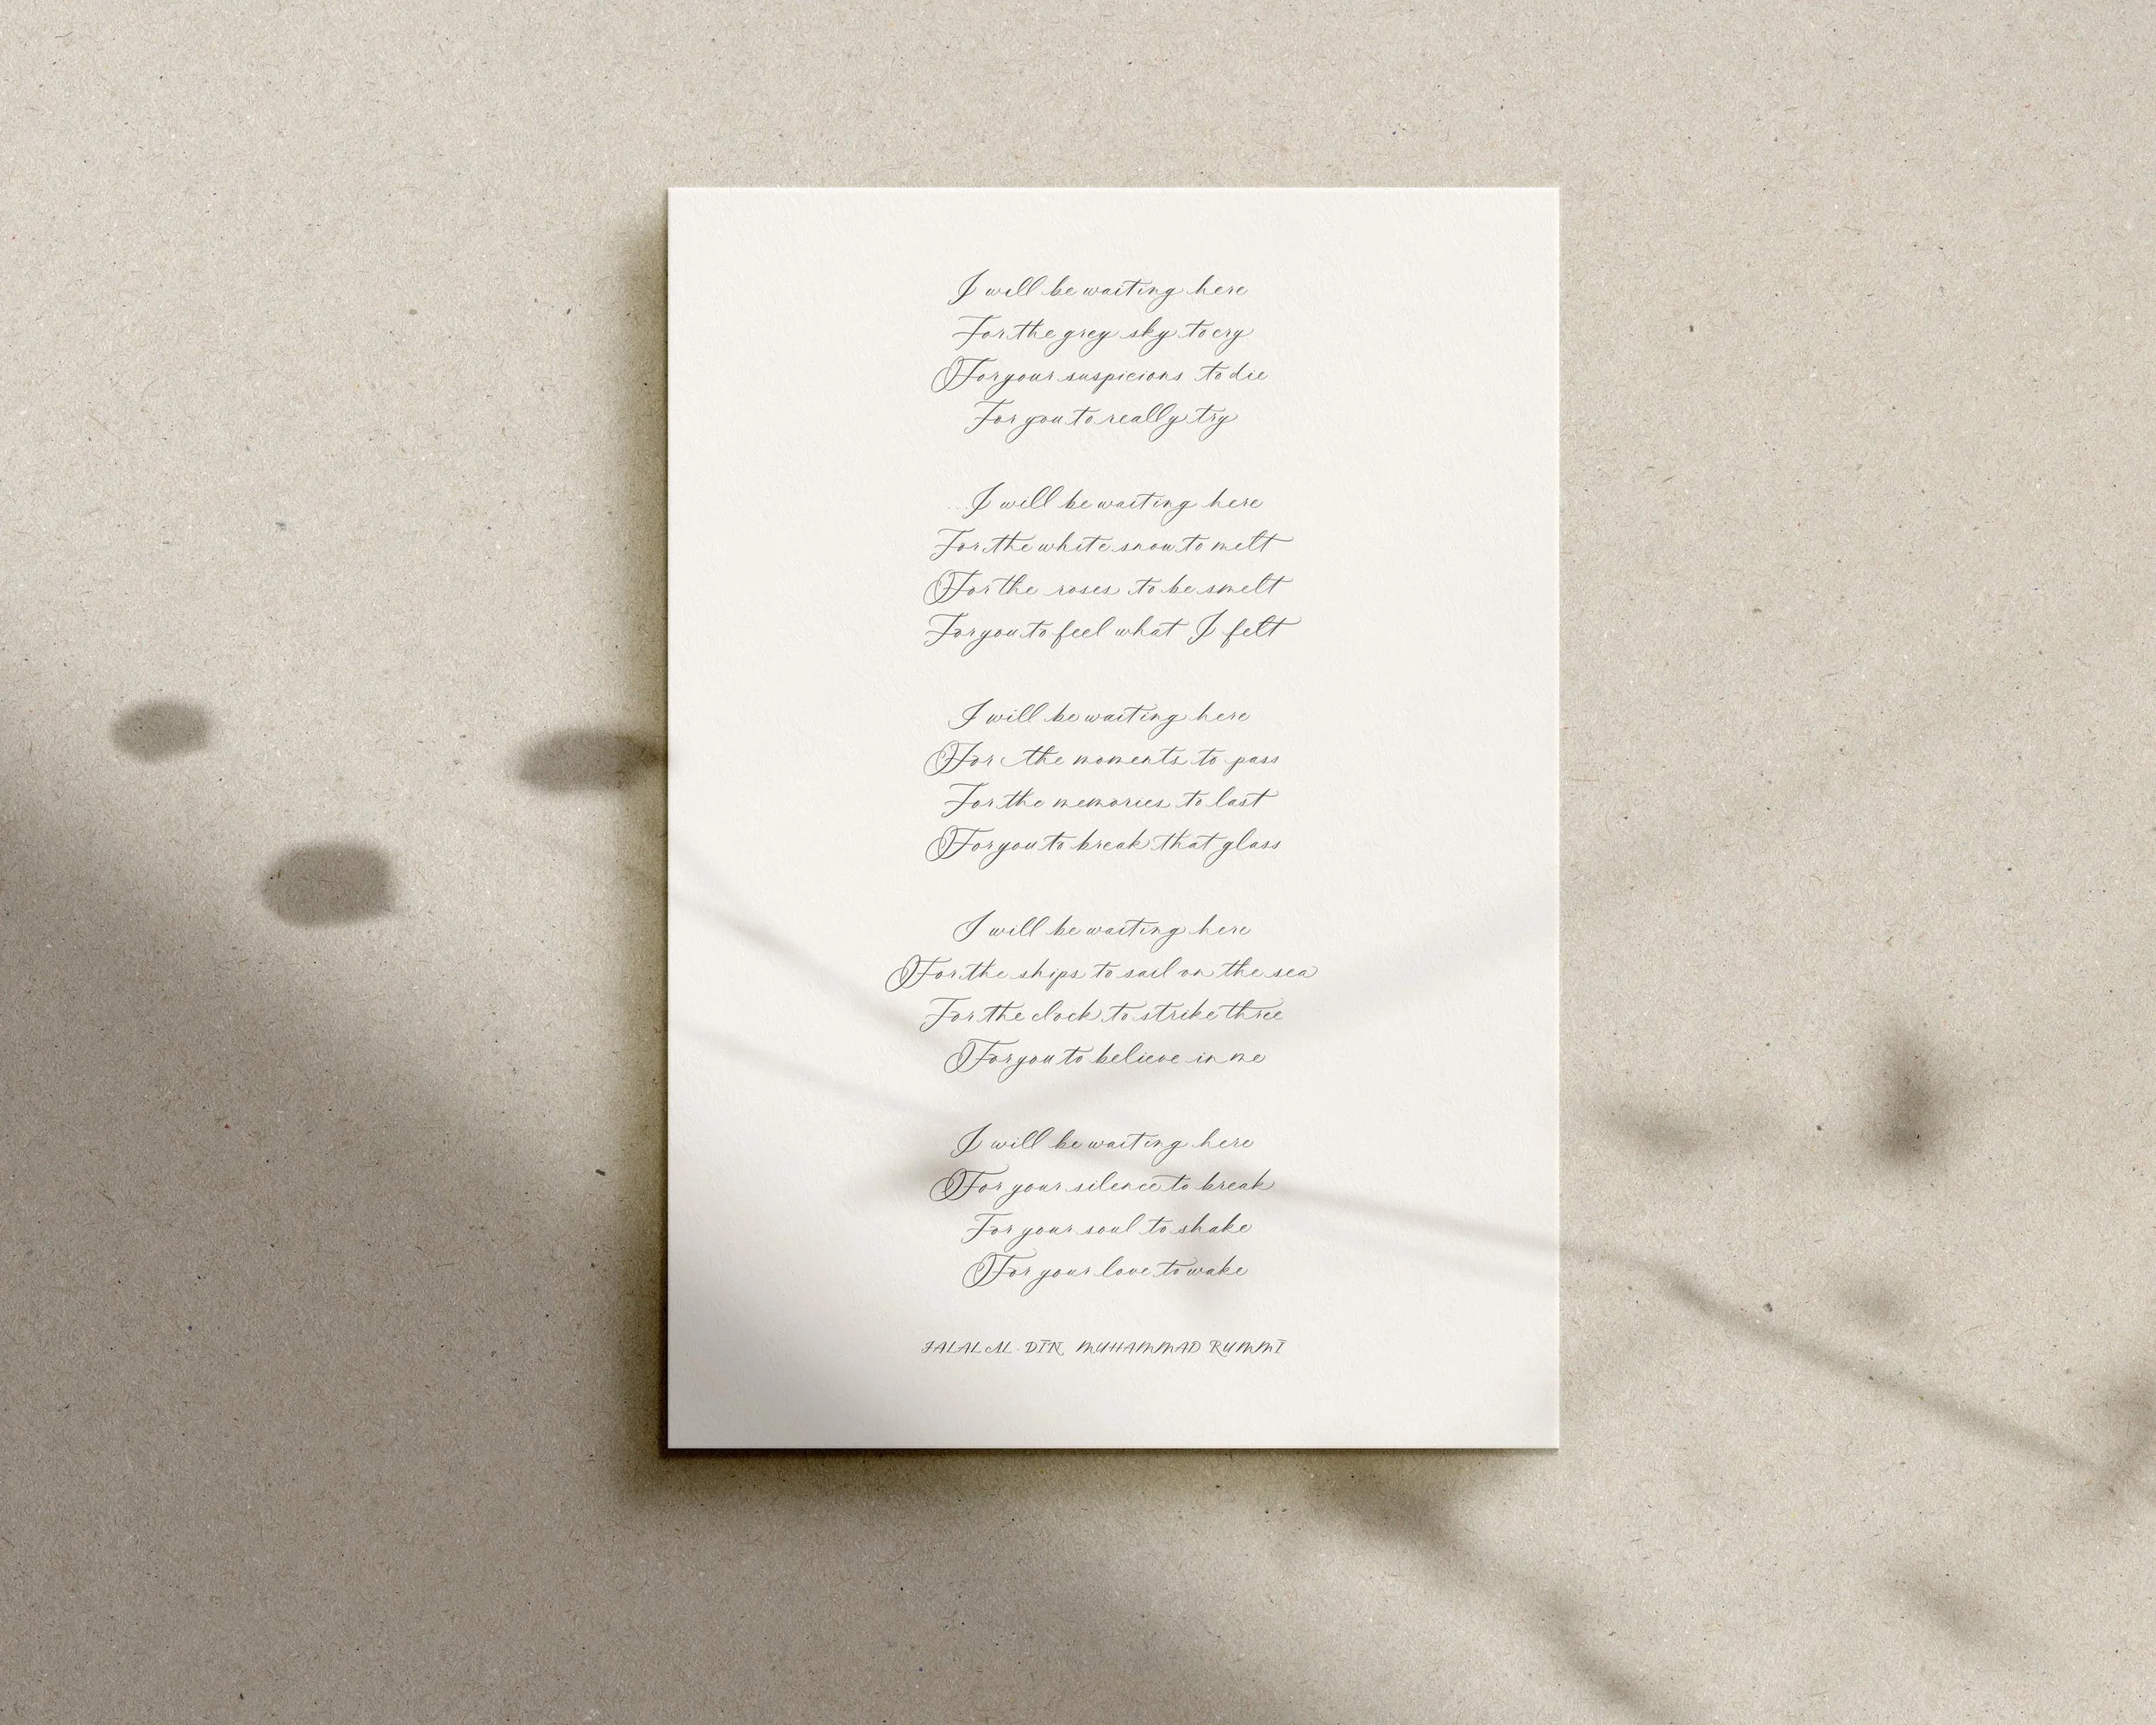 I will be waiting here
For the grey sky to cry
For your suspicions to die
For you to really try
I will be waiting here
For the white snow to melt
For the roses to be smelt
For you to feel what I felt
I will be waiting here
For the moments to pass
For the memories to last
For you to break that glass
I will be waiting here
For the ships to sail on the sea
For the clock to strike three
For you to believe in me
I will be waiting here
For your silence to break
For your soul to shake
For your love to wake
JALAL AL-DIN MUHAMMAD RUMMI